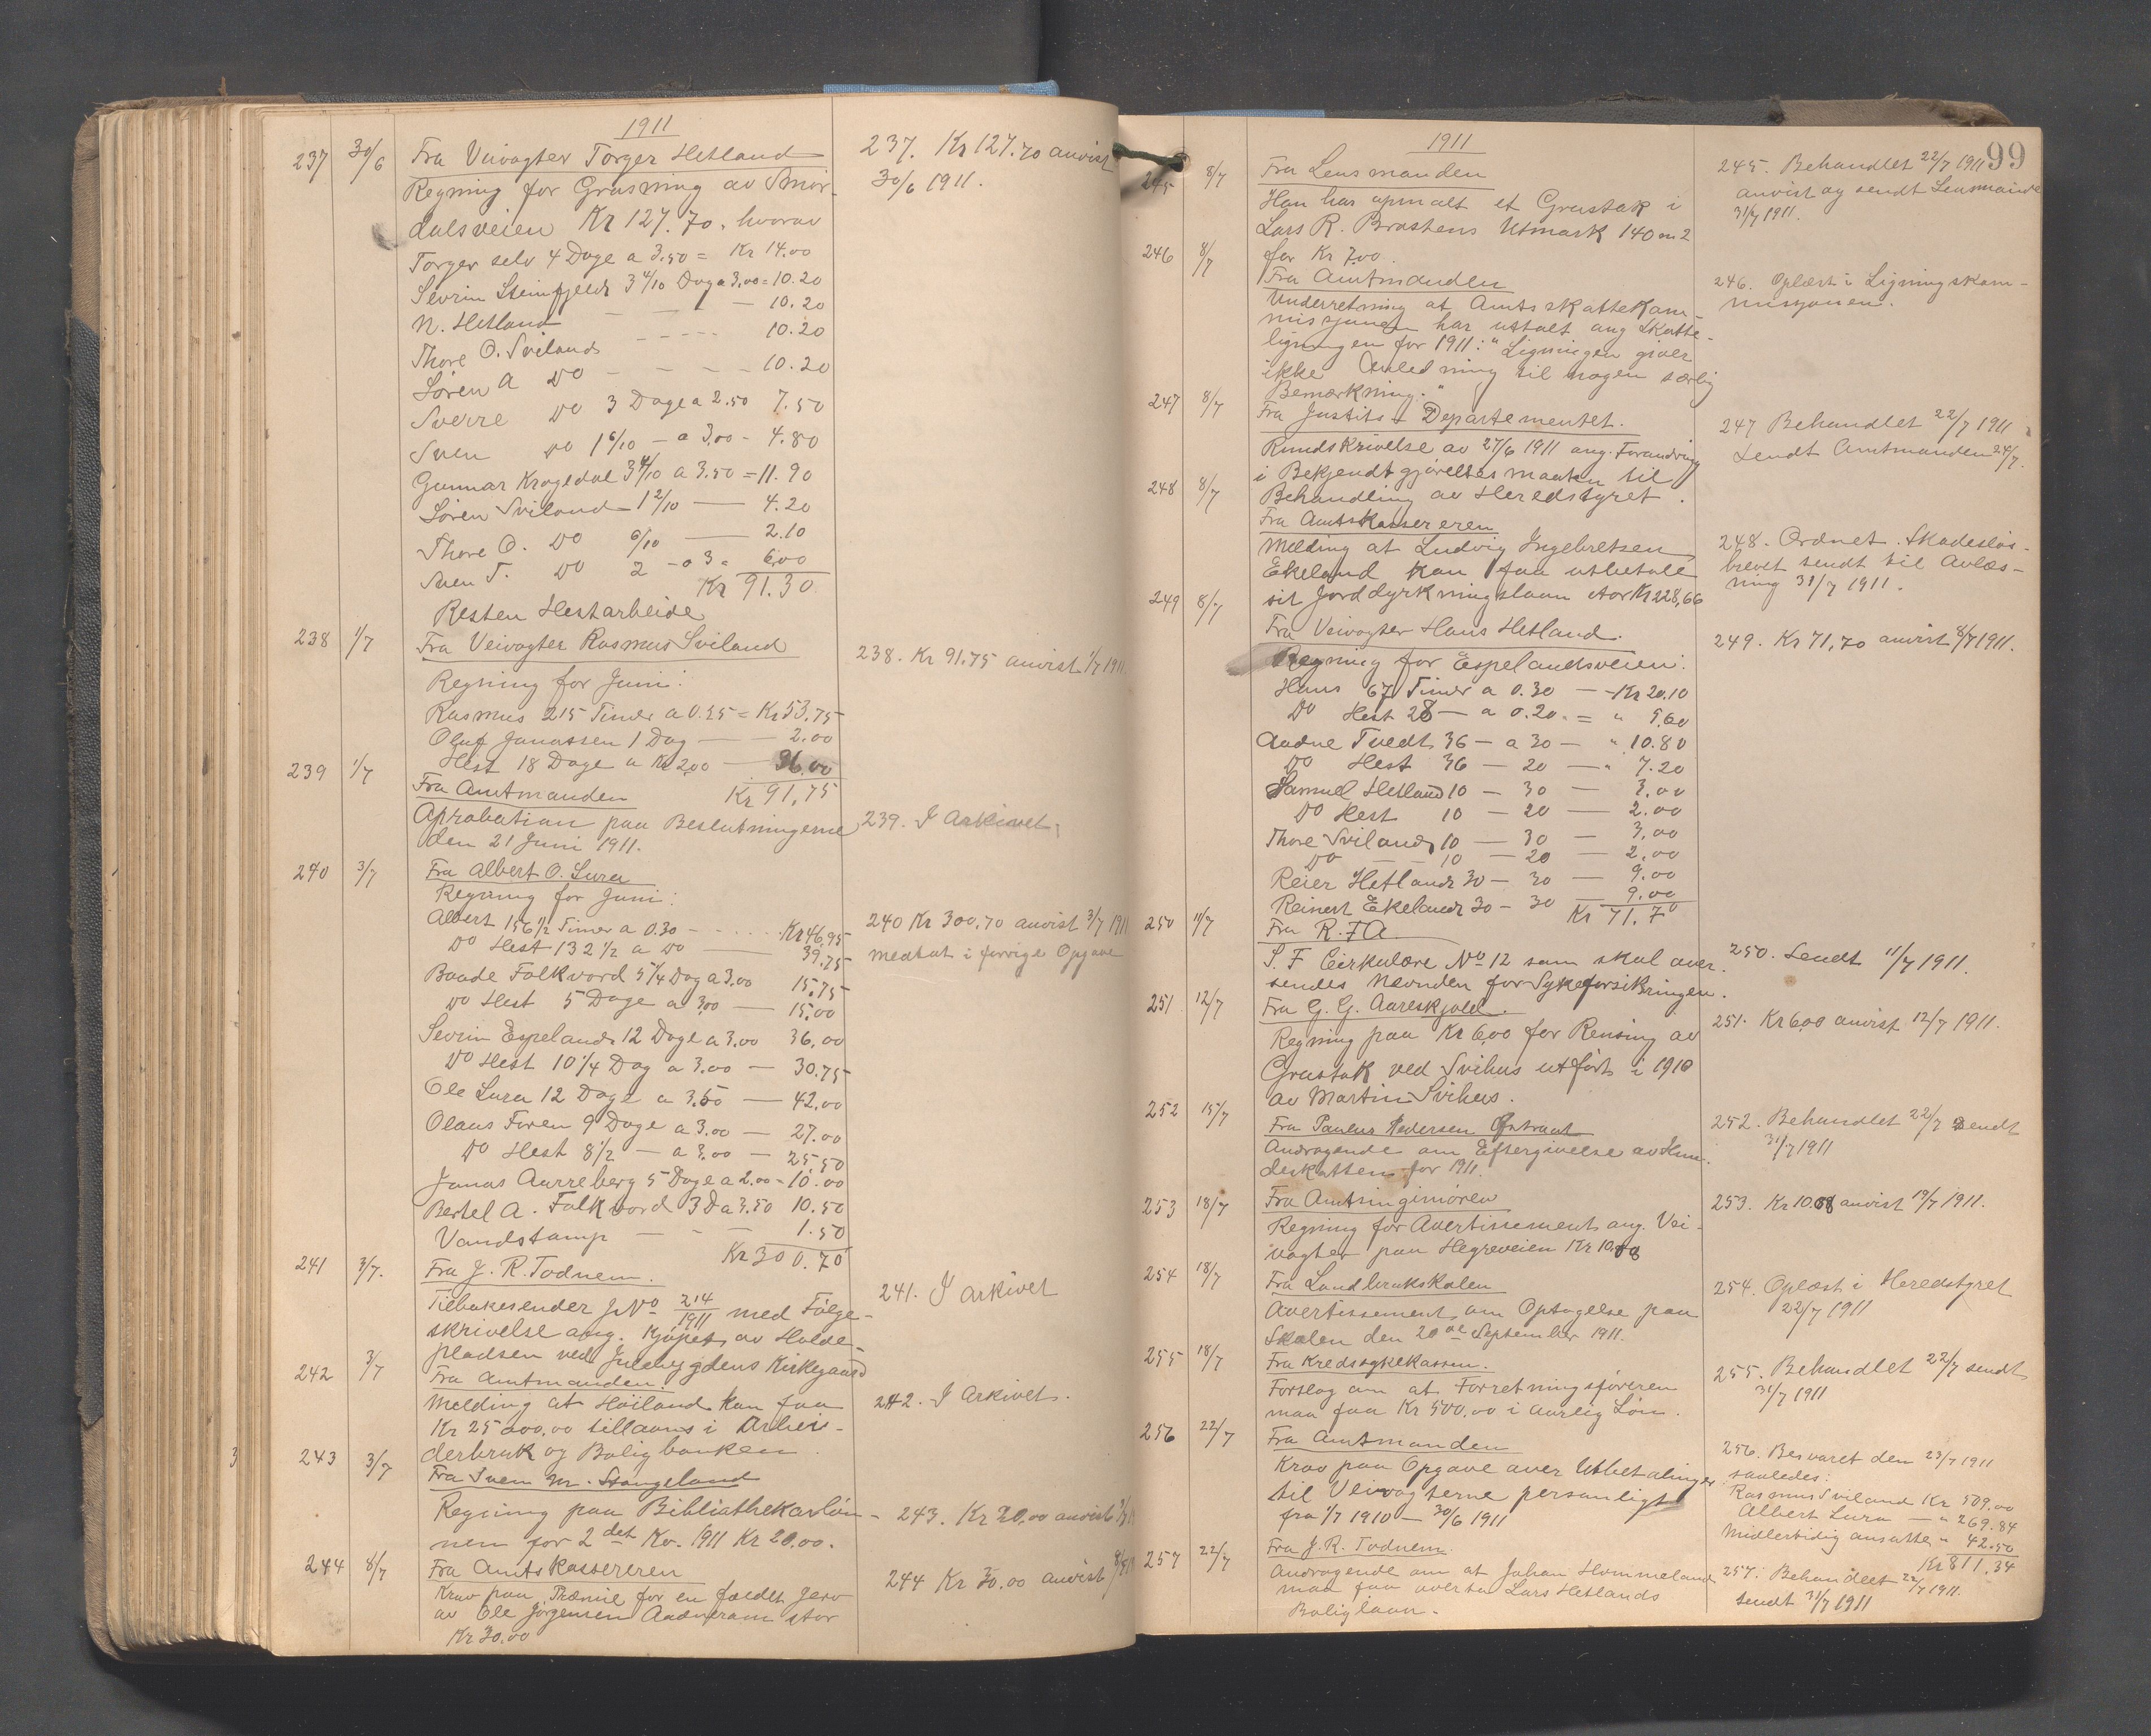 1911
237 30/6 Fra Veivagter Torger Hetland
Regning for Grusning av Smør-
dalsveien Kr 127.70. hvorav
Torger selv 4 Dage a 3.50 = Kr 14.00
Sevrin Steinfjeld 3 4/10 Dag a 3.00 = 10.20
N. Hetland — — — 10.20
Thore O. Sviland - - - - 10.20
Søren A do - - - - 10.20
Sverre do 3 Dage a 2.50 7.50
Sven do 1 6/10 - a 3.00 - 4.80
Gunnar Kragedal 3 4/10 a 3.50 = 11.90
Søren Sviland 1 2/10 — 4.20
Thore O. do 6/10 — 2.10
Sven T. do 2 - a 3 = 6.00
Kr 91.30
Resten Hestarbeide
237. Kr 127.70 anvist
30/6 1911.
238 1/7 Fra Veivagter Rasmus Sviland
Regning for Juni:
Rasmus 215 Timer a 0.25 = Kr 53.75
Oluf Janassen 1 Dag — 2.00
Hest 18 Dage a Kr 2.00 — 36.00
Kr 91.75
238. Kr 91.75 anvist 1/7 1911.
239 1/7 Fra Amtmanden
Aprobation paa Beslutningerne
den 21 Juni 1911.
239. I Arkivet.
240 3/7 Fra Albert O. Lura
Regning for Juni:
Albert 156 1/2 Timer a 0.30 - - - Kr 46.95
Do Hest 132 1/2 a Do — 39.75
Baade Folkvord 5 1/4 Dag a 3.00 15.75
Do Hest 5 Dage a 3.00 — 15.00
Sevrin Espeland 12 Dage a 3.00 36.00
Do Hest 10 1/4 Dag a 3.00 — 30.75
Ole Lura 12 Dage a 3.50 — 42.00
Olaus Foren 9 Dage a 3.00 — 27.00
Do Hest 8 1/2 — a 3.00 — 25.50
Jonas Aurreberg 5 Dage a 2.00 - 10.00
Bertel A. Folkvord 3 D a 3.50 10.50
Vandstamp — - 1.50
Kr 300.70
240 Kr 300.70 anvist 3/7 1911
medtat i forrige Opgave
241 3/7. Fra J. R. Todnem.
Tilbakesender J No 214/1911 med Følge-
skrivelse ang. Kjøpet av Holde-
pladsen ved Julebygdens Kirkegaard
241. I arkivet
242 3/7 Fra Amtmanden.
Melding at Høiland kan faa
Kr 25 000.00 tillaans i Arbei-
derbruk og Boligbanken.
242. I Arkivet.
243 3/7 Fra Sven M. Stangeland
Regning paa Bibliothekarløn-
nen for 2det Kv. 1911 Kr 20.00.
243. Kr 20.00 anvist
244 8/7 Fra Amtskassereren
Krav paa Præmie for en fældet Jerv
av Ole Jørgensen Aadneram stor
Kr 30.00
244 Kr 30.00 anvist
3
99
1911
245 8/7 Fra Lensmanden
Han har opmalt et Grustak i
Lars R. Brastens Utmark 140 m2
for Kr 7.00.
245. Behandlet 22/7 1911
anvist og sendt Lensmande
31/7 1911.
246 8/7 Fra Amtmanden
Underretning at Amtsskattekom-
missjonen har uttalt ang Skatte-
ligningen for 1911: "Ligningen giver
ikke Anledning til nogen særlig
Bemærkning."
246. Oplæst i Ligningskom-
missjonen.
247 8/7 Fra Justits Departementet.
Rundskrivelse av 27/6 1911 ang. Forandring
i Bekjendtgjørelsesmaaten til
Behandling av Heredstyret.
247 Behandlet 22/7 1911
Sendt Amtmanden 24/7.
248 8/7 Fra Amtskassereren
Melding at Ludvig Ingebretsen
Ekeland kan faa utbetale
sit Jorddyrkningslaan stor Kr 228,66
248. Ordnet. Skadesløs-
brevet sendt til Avlæs-
ning 31/7 1911.
249 8/7 Fra Veivagter Hans Hetland.
Regning for Espelandsveien:
Hans 67 Timer a 0.30 — - Kr 20.10
Do Hest 28 — a 0.20. = " 5.60
Aadne Tvedt 36 — a 30 — " 10.80
Do Hest 36 — 20 — " 7.20
Samuel Hetland 10 — 30 — 3.00
Do Hest 10 — 20 — 2.00
Thore Sviland 10 — 30 — 3.00
Do — 10 — 20 — 2.00
Reier Hetland 30 — 30 — 9.00
Reinert Ekeland 30 - 30 9.00
Kr 71.70
249. Kr 71.70 anvist 8/7 1911.
250 11/7 Fra R.F.A.
S. F Cirkulære No 12 som skal over-
sendes Nevnden for Sykeforsikringen.
250. Sendt 11/7 1911.
251 12/7 Fra G. G. Aareskjold.
Regning paa Kr 6,00 for Rensing av
Grustak ved Svihus utført i 1910
av Martin Svihus.
251. Kr 6,00 anvist 12/7 1911.
252 15/7 Fra Paulus Pedersen
Andragende om Eftergivelse av Hun-
deskatten for 1911.
252. Behandlet 22/7 Sendt
31/7 1911
253 18/7 Fra Amtsingeniøren
Regning for Avertissement ang. Vei-
vagter paa Hegreveien Kr 10.08
253. Kr 10.08 anvist 19/7 1911.
254 18/7 Fra Landbrukskolen
Avertissement om Optagelse paa
Skolen den 20de September 1911.
254. Oplæst i Heredstyret
22/7 1911
255 18/7 Fra Kredssykekassen.
Forslag om at Forretningsføreren
maa faa Kr 500.00 i aarlig Løn.
255. Behandlet 22/7 sendt
31/7 1911
256 22/7 Fra Amtmanden
Krav paa Opgave over Utbetalinger
til Veivagterne personligt
fra 1/7 1910 — 30/6 1911
256. Besvaret den 23/7 1911
saaledes:
Rasmus Sviland Kr 509.00
Albert Lura — " 269.84
Midlertidig ansatte " 42.50
Kr 811.34
257 22/7 Fra J. R. Todnem.
Andragende om at Johan Hommeland
maa faa overta Lars Hetlands
Boliglaan.
257. Behandlet 22/7 1911.
sendt 31/7 1911